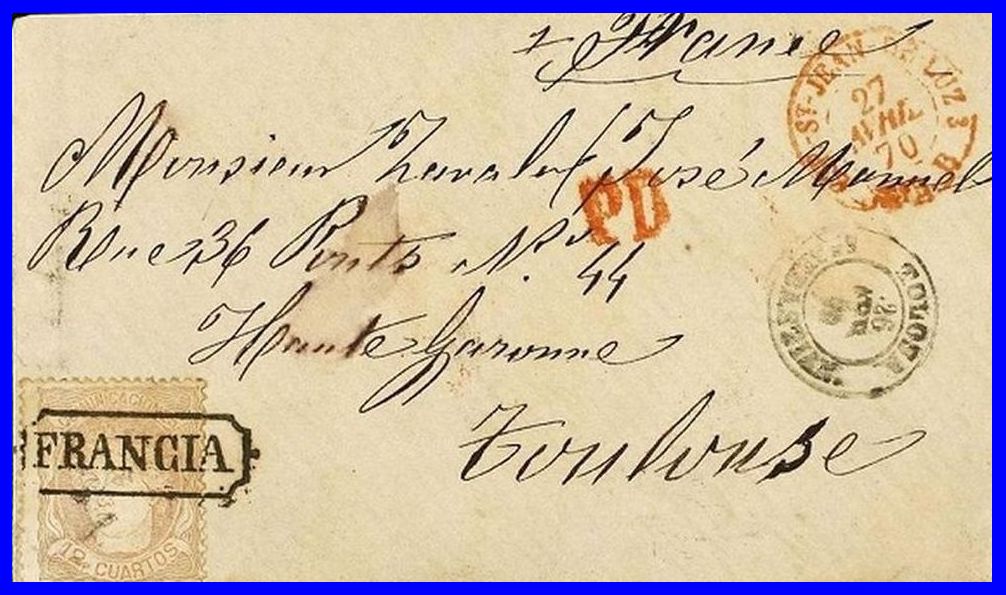 France
ST-JEAN DE LUZ 3
27
AVRIL
70
Monsieur Zavala (José Manuel
PD
Rue 36 Ponts N.º 44
TOLOSA
26
70
Haute Garonne
Toulouse
FRANCIA
12 CUARTOS